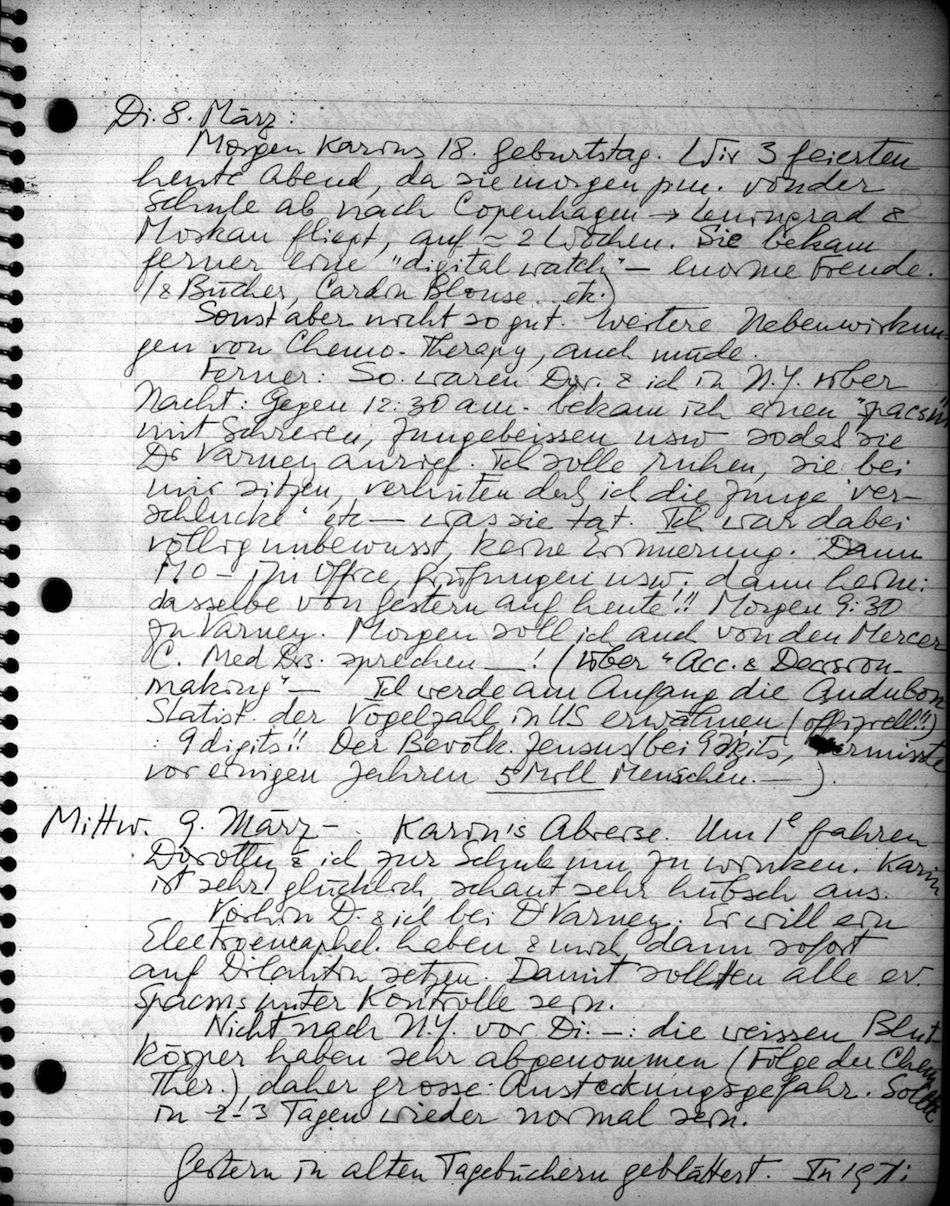 Di. 8. März:
Morgen Karins 18. Geburtstag. Wir 3 feierten
heute Abend, da sie morgen pm. von der
Schule ab nach Copenhagen → Leningrad &
Moskau fliegt, auf ≈ 2 Wochen. Sie bekam
ferner eine "digital watch" — enorme Freude.
(& Bücher, Cardin Blouse etc.)
Sonst aber nicht so gut. Weitere Nebenwirkun-
gen von Chemo-Therapy, auch müde.
Ferner: So. waren Dor. & ich in N.Y. über
Nacht: Gegen 12:30 am. bekam ich einen "spacsm"
mit Schreien, Zungebeissen usw sodas sie
Dr Varney anrief. Ich solle ruhen, sie bei
mir sitzen, verhüten das ich die Zunge "ver-
schlucke" etc — was sie tat. Ich war dabei
völlig unbewusst, keine Erinnerung. Dann
MO — zu Office, Prüfungen usw; dann heim:
dasselbe von gestern auf heute!! Morgen 9:30
zu Varney. Morgen soll ich auch von den Mercer
C. Med Drs. sprechen —! (über "Acc. & Decision-
making" — Ich werde am Anfang die Audubon
Statist. der Vogelzahl in US erwähnen (offiziell!!)
: 9 digits!! Der Bevölk. Zensus (bei 9 digits, vermisste
vor einigen Jahren 5 Mill Menschen. —).
Mittw. 9. März — . Karin's Abreise. Um 1e fahren
Dorothy & ich zur Schule um zu winken. Karin
ist sehr glücklich, schaut sehr hübsch aus.
Vorhin D. & ich bei Dr Varney. Er will ein
Electroencaphel. haben & mich dann sofort
auf Dilantin setzen. Damit sollten alle ev.
Spacms unter Kontrolle sein.
Nicht nach N.Y. vor Di. —: die weissen Blut-
körper haben sehr abgenommen (Folge der Chem
Ther.), daher grosse Ansteckungsgefahr. Sollte
in 2-3 Tagen wieder normal sein.
Gestern in alten Tagebüchern geblättert. In 1971: